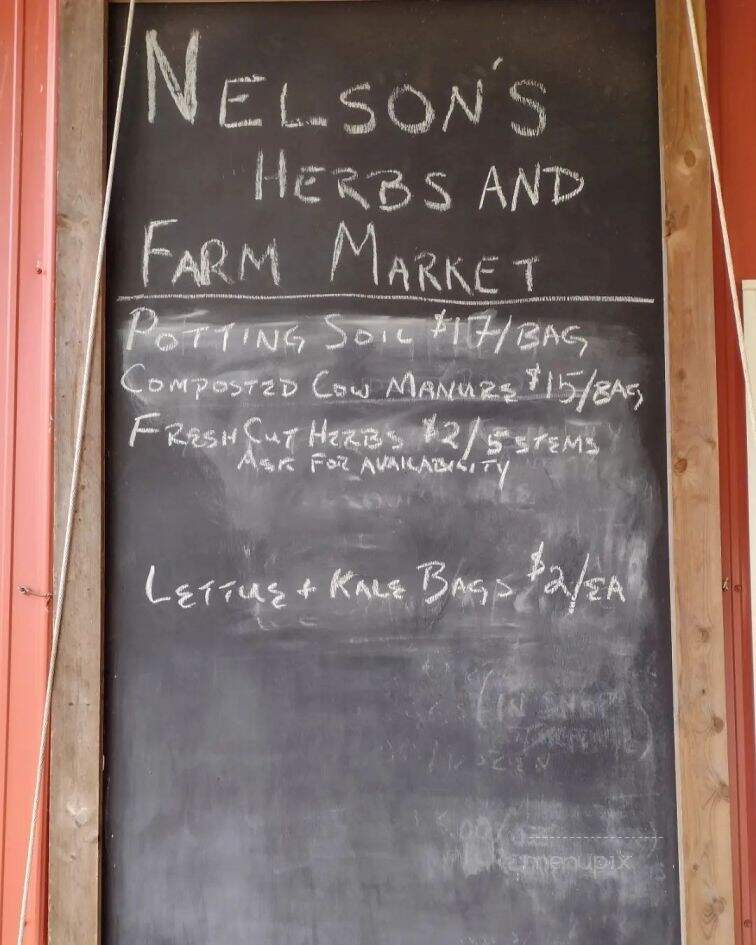 NELSON'S
HERBS AND
FARM MARKET
POTTING SOIL $17/BAG
COMPOSTED COW MANURE $15/BAG
FRESH CUT HERBS $2/5 STEMS
ASK FOR AVAILABILITY
LETTUE + KALE BAGS $2/EA
(IN SHOP
menupix